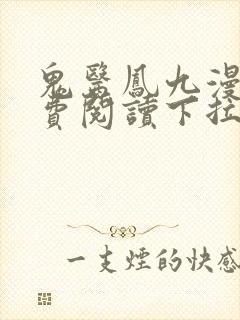 鬼醫鳳九漫
費閱讀下拉
一支煙的快感